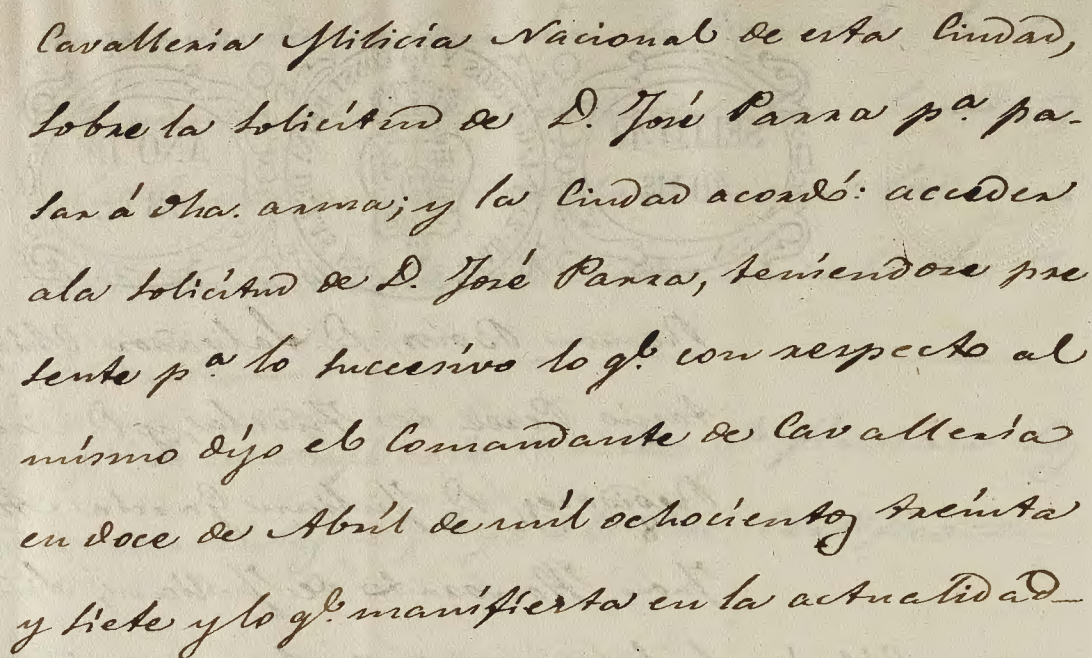 Cavalleria Milicia Nacional de esta Ciudad,
sobre la solicitud de D. José Parra pª. pa-
sar á dha. arma; y la Ciudad acordó: acceder
ala solicitud de D. José Parra, teniendose pre
sente pª lo succesivo lo qᵉ. con respecto al
mismo dijo el Comandante de Cavalleria
en doce de Abril de mil ochocientos treinta
y siete y lo qᵉ. manifiesta en la actualidad_